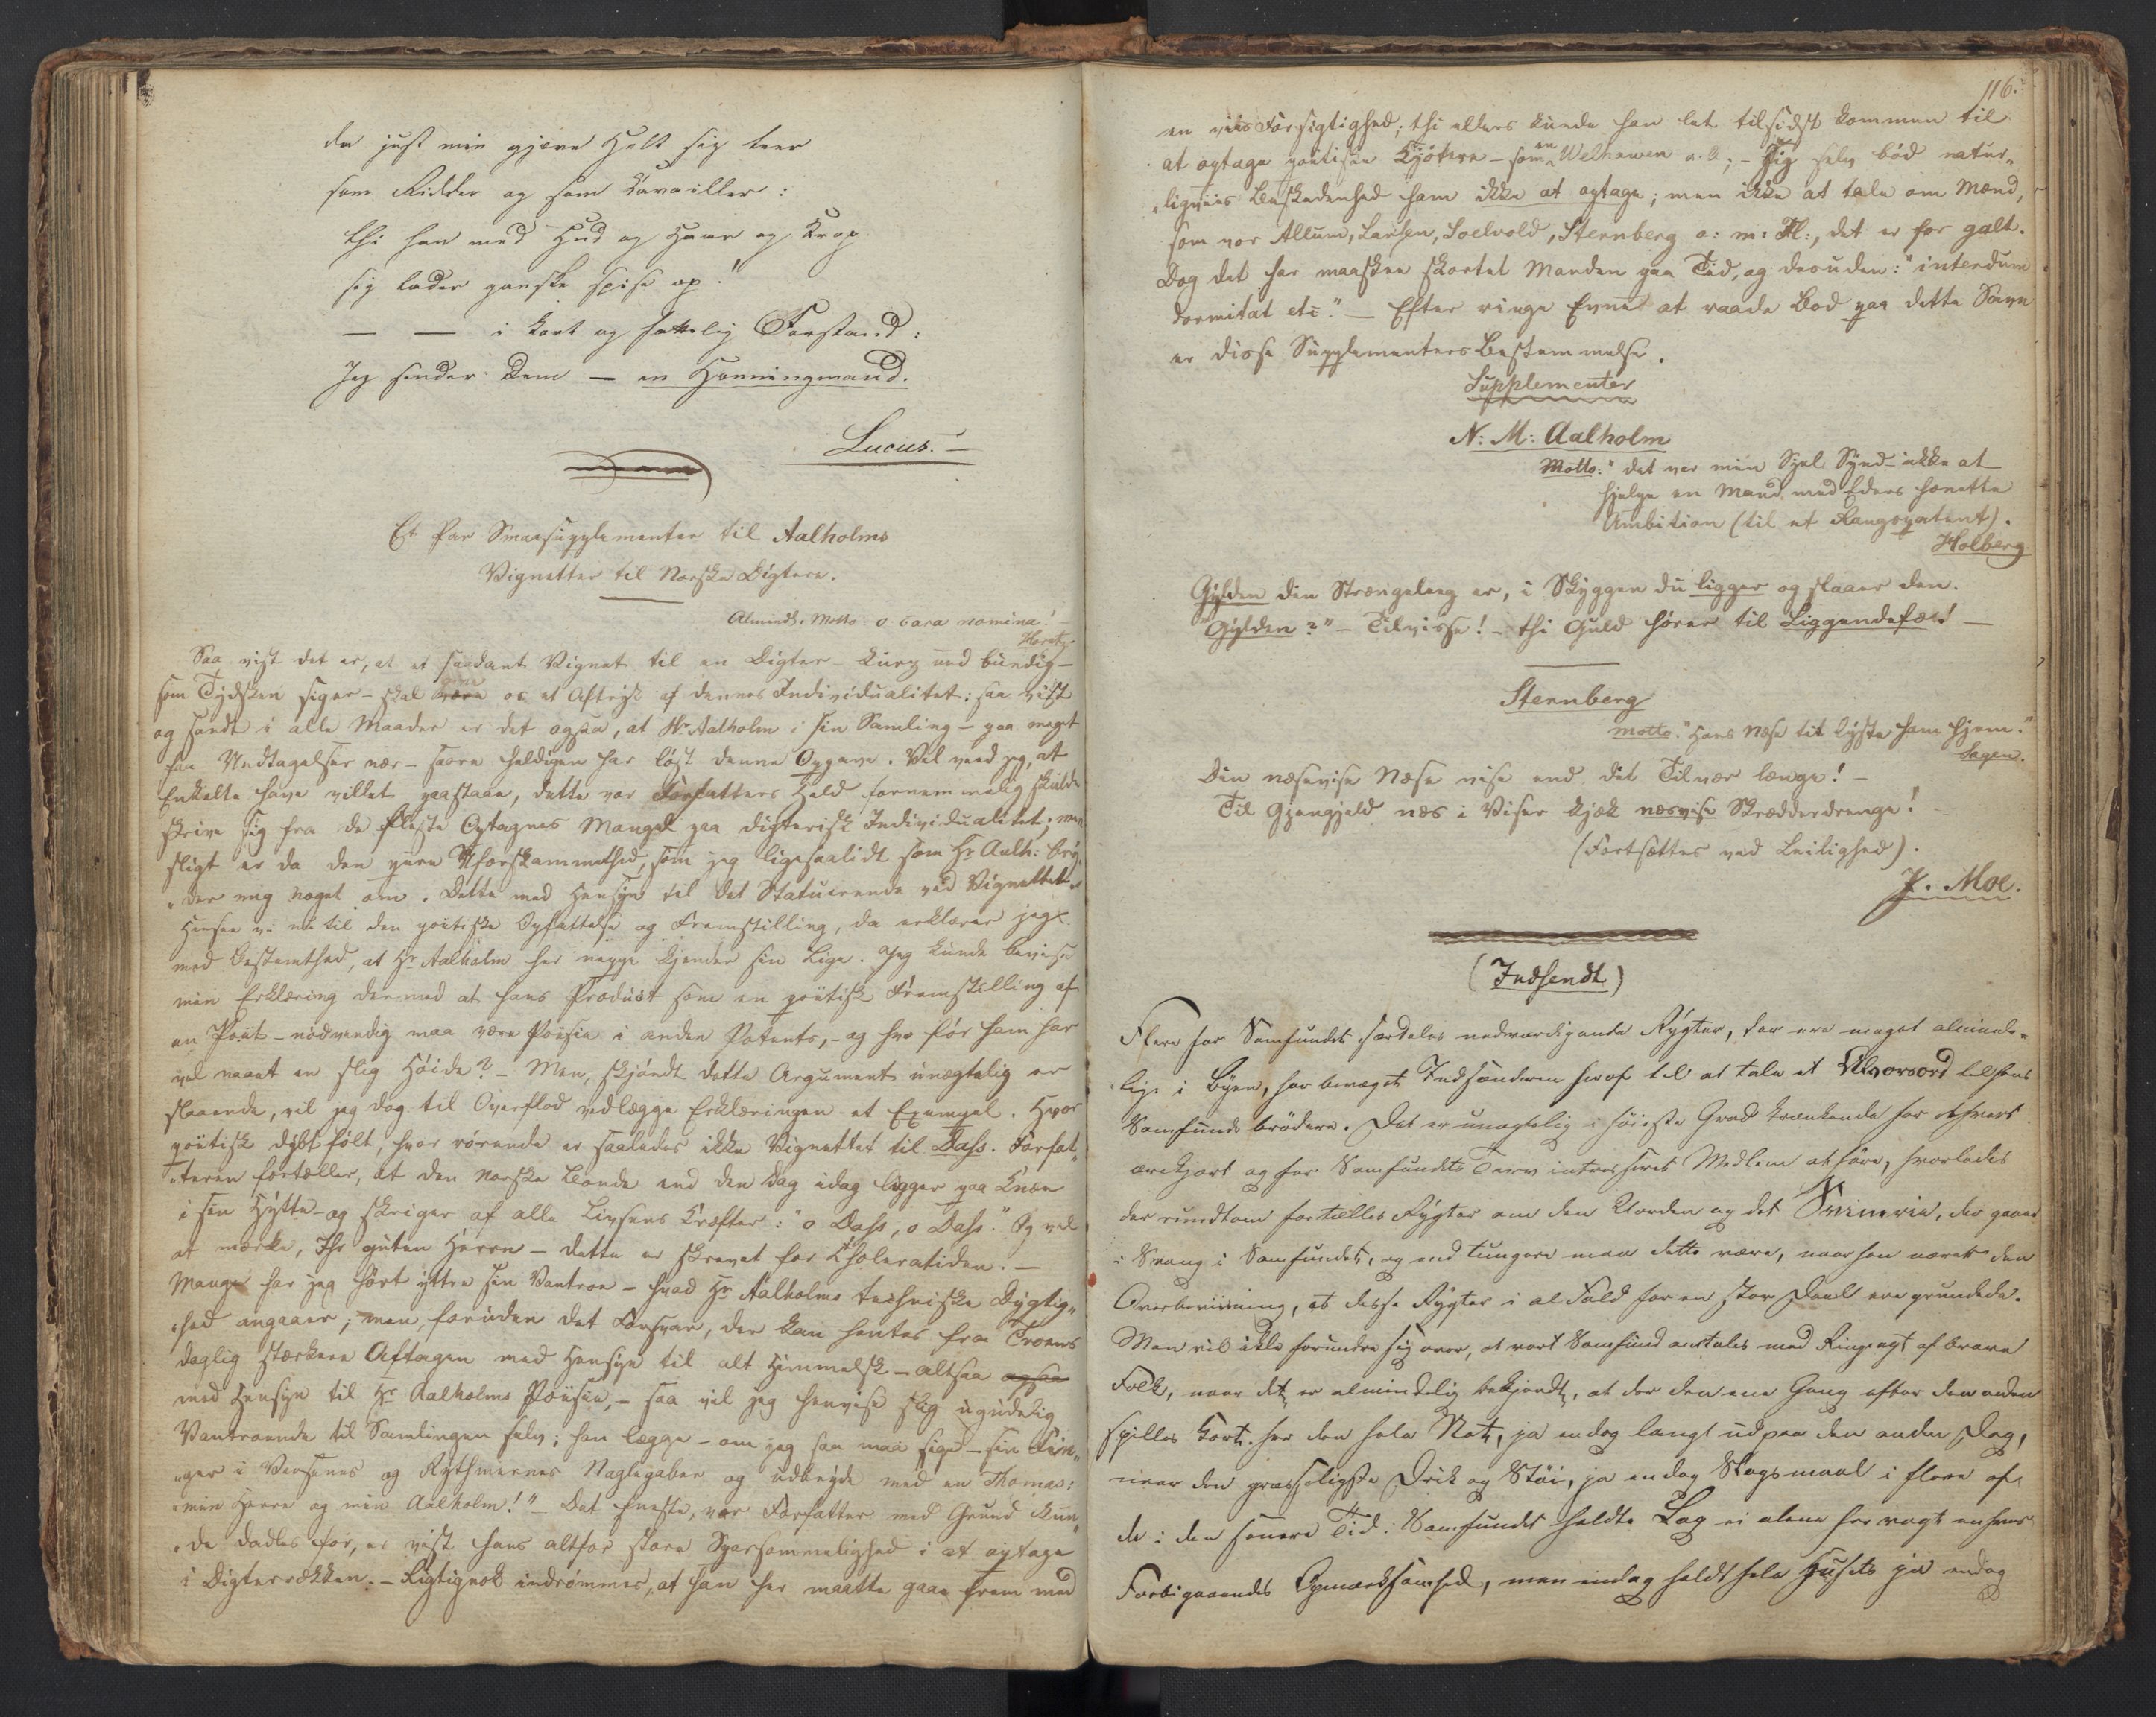 da just min gjæve Helt sig teer
som Ridder og som Cavailler:
thi han med Hud og Haar og Krop
sig lader ganske spise op!
— — i kort og fattelig Forstand:
Jeg sender Dem — en Honningmand.
Lucus. —
Et Par Smaasupplementer til Aalholms
Vignetter til Norske Digtere.
Almindl. Motto: o cara nomina! —
Horatz.
Saa vist det er, at et saadant Vignet til en Digter – kurz und bündig –
som Tydsken siger – skal være os et Aftryk af dennes Individualitet: saa vist
og sandt i alle Maader er det ogsaa, at Hr. Aalholm i sin Samling – paa meget
faa Undtagelser nær – saare heldigen har løst denne Opgave. Vel veed jeg, at
Enkelte have villet paastaae, dette vor Forfatters Held fornemmelig skulde
skrive sig fra de fleste Optagnes Mangel paa digterisk Individualitet; men
sligt er da den pure Uforskammethed, som jeg ligesaalidt som Hr. Aalh. bry„
„der mig noget om. Dette med Hensyn til det Statuerende ved Vignettet„
Hensee vi nu til den poetiske Opfattelse og Fremstilling, da erklærer jeg
med Bestemthed, at Hr. Aalholm her neppe kjender sin Lige. Jeg kunde bevise
min Erklæring dermed at hans Product som en poetisk Fremstilling af
en Poet – nødvendig maa være Poesie i anden Potents, – og hvo før ham har
vel naaet en slig Høide? – Men, skjøndt dette Argument unægtelig er
slaaende, vil jeg dog til Overflod vedlægge Erklæringen et Exempel. Hvor
poetisk dybt følt, hvor rørende er saaledes ikke Vignettet til Dass. Forfat„
„teren fortæller, at den norske Bonde end den Dag idag ligger paa Knæe
i sin Hytte – og skriger af alle Livsens Kræfter: "o Dass, o Dass." Og vel
at mærke, Ihr guten Herrn – dette er skrevet før Choleratiden. —
Mange har jeg hørt yttre sin Vantroe – hvad Hr. Aalholms techniske Dygtig„
„hed angaaer; men foruden det Forsvar, der kan hentes fra Troens
daglig stærkere Aftagen med Hensyn til alt Himmelsk – altsaa ogsaa
med Hensyn til Hr. Aalholms Poesie, – saa vil jeg henvise slig ugudelig
Vantroende til Samlingen selv; han lægge – om jeg saa maa sige – sin Fin„
„ger i Versenes og Rythmernes Naglegaber og udbryde med en Thomas:
„min Herre og min Aalholm!" – Det eneste, vor Forfatter med Grund kun„
„de dadles for, er vist hans altfor store Sparsommelighed i at optage
i Digterrækken. – Rigtignok indrømmes, at han her maatte gaae frem med
116.
en viis Forsigtighed; thi ellers kunde han let tilsidst kommen til
at optage poetiske Kjøtere – som en Welhaven o. a.; – Sig selv bød natur„
„ligviis Beskedenhed ham ikke at optage; men ikke at tale om Mænd,
som vor Allum, Larsen, Soelvold, Sternberg o: m: Fl:, det er for galt.
Dog det har maaskee skortet Manden paa Tid, og desuden: "interdum
dormitat etc". — Efter ringe Evne at raade Bod paa dette Savn
er disse Supplementers Bestemmelse.
Supplementer
N: M: Aalholm
Motto: "det var min Sjæl Synd ikke at
hjelpe en Mand med Eders honette
Ambition (til et Rangspatent).
Holberg.
Gylden din Strængeleeg er, i Skyggen du ligger og slaaer den.
"Gylden?" – Tilvisse! – thi Guld hører til Liggendefæ! —
Sternberg
Motto: "Hans Næse tit lyste ham hjem."
Sagen.
Din næsevise Næse vise end dit Tilvær længe! –
Til Gjengjeld næs i Viser kjæk næsvise Skrædderdrenge!
(Fortsættes ved Leilighed).
J. Moe.
(Indsendt)
Flere for Samfundet særdeles nedværdigende Rygter, der ere meget alminde„
„lige i Byen, har bevæget Indsenderen heraf til at tale et Alvorsord til hans
Samfundsbrødere. Det er unægtelig i høieste Grad krænkende for ethvert
ærekjært og for Samfundets Tarv intresseret Medlem at høre, hvorledes
der rundtom fortælles Rygter om den Uorden og det Svineri, der gaaer
i Svang i Samfundet, og end tungere maa dette være, naar han nærer den
Overbeviisning, at disse Rygter i al Fald for en stor Deel ere grundede.
Man vil ikke forundre sig over, at vort Samfund omtales med Ringeagt af brave
Folk, naar det er almindelig bekjendt, at der den ene Gang efter den anden
spilles Kort her den hele Nat, ja endog langt ud paa den anden Dag,
naar den græsseligste Drik og Støi, ja endog Slagsmaal i flere af
de i den senere Tid i Samfundet holdte Lag ei alene har vagt enhver
Forbigaaendes Opmærksomhed, men endog holdt hele Husets ja endog